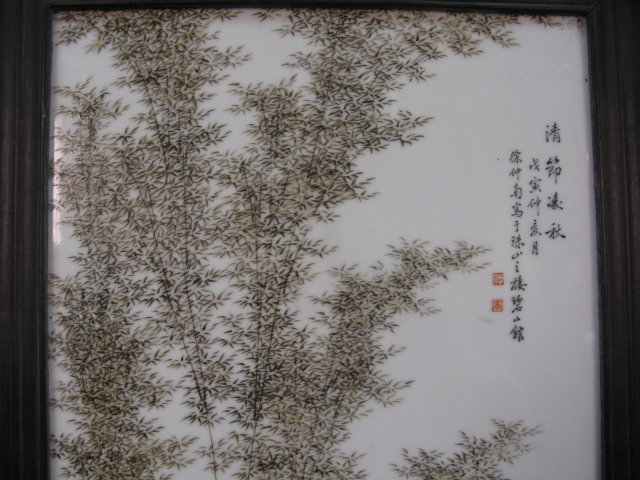 清節凌秋
戊寅仲夏月
徐仲南寫于珠山之棲碧山館